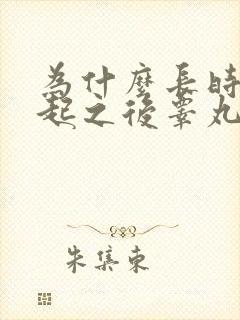 為什麼長時
起之後睪丸
朱集東